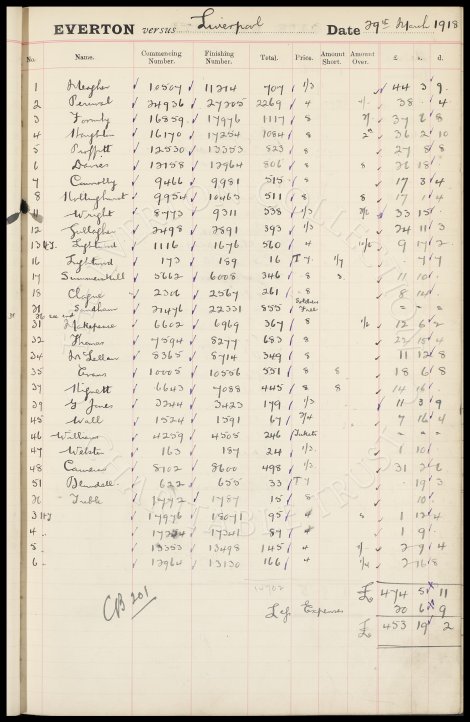 EVERTON versus Liverpool Date 29th March 1918
No. Name. Commencing Number. Finishing Number. Total. Price. Amount Short. Amount Over. £ s. d.
1 Meagher 10507 11214 707 1/3 44 3 9
2 Percival 24936 27205 2269 4 38 4
3 Formby 16859 17976 1117 8 37 6 8
4 Houghton 16170 17254 1084 8 36 2 10
5 Proffitt 12530 13353 823 8 27 8 8
6 Davies 12158 12964 806 8 26 18
7 Connolly 9466 9981 515 8 17 3 4
8 Hollinghurst 9954 10465 511 8 8 17 1 4
11 Wright 8773 9311 538 1/3 33 15
12 Gallagher 2498 2891 393 1/3 24 11 3
13 Lightund 1116 1676 560 4 9 17 2
16 Lightund 173 189 16 1/7 7 7
17 Summerskill 5662 6008 346 8 8 11 10
18 Clague 2306 2567 261 8 8 14
21 Sandham 21476 22331 855 Soldiers Free " " "
31 Makepeace 6602 6969 367 8 12 6 2
32 Thomas 7594 8277 683 8 22 15 4
34 McLellan 8365 8714 349 8 11 12 8
35 Evans 10005 10556 551 8 8 18 6 8
37 Hignett 6643 7088 445 8 8 14 16
39 G Jones 3244 3423 179 1/3 11 3 9
45 Wall 1524 1591 67 2/4 7 16 4
46 Williams 4259 4505 246 Tickets " " "
47 Webster 163 187 24 1/3 1 10
48 Cameron 8102 8600 498 1/3 31 2 6
51 Blundell 622 655 33 19 3
36 Treble 1772 1787 15 8 10
3 17976 18071 95 4 1 12 4
4 17254 17341 87 4 1 9
5 13353 13498 145 4 2 9 4
6 12964 13130 166 4 2 16 8
£ 474 5 11
CB 201
Less Expenses 20 6 9
£ 453 19 2